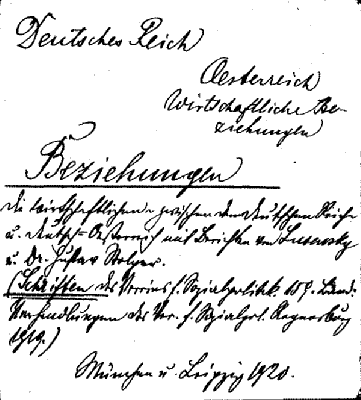 Deutsches Reich
Oesterreich
Wirtschaftliche Be-
ziehungen
Beziehungen
Die wirtschaftlichen - zwischen dem Deutschen Reiche
u. Deutsch-Oesterreich mit Berichten von
u. Dr. Gustav Stolper.
(Schriften des Vereins f. Sozialpolitik 159. Band.
Verhandlungen des Ver. f. Sozialpol. Regensburg
1919.)
München u. Leipzig 1920.